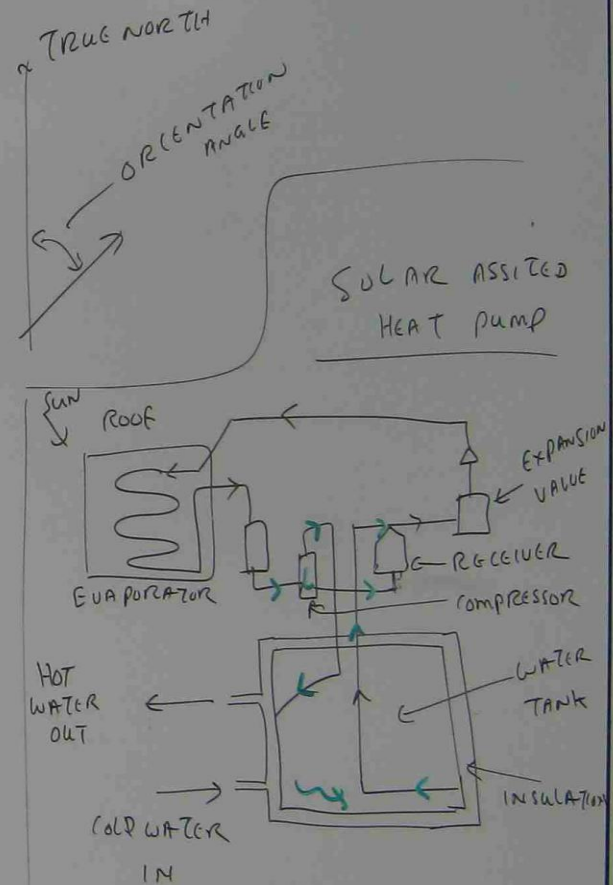 TRUE NORTH
ORIENTATION
ANGLE
SOLAR ASSITED
HEAT PUMP
SUN
ROOF
EXPANSION
VALUE
RECEIVER
EVAPORATOR
COMPRESSOR
HOT
WATER
OUT
WATER
TANK
INSULATION
COLD WATER
IN